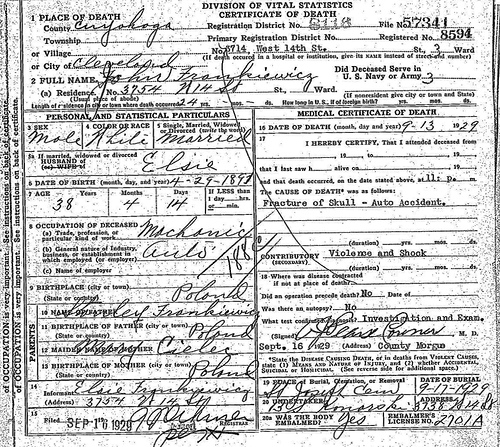 DIVISION OF VITAL STATISTICS
CERTIFICATE OF DEATH
1 PLACE OF DEATH
County Cuyahoga Registration District No. File No. 57341
Township Primary Registration District No. Registered No. 8594
or Village 3714 West 14th St. St., 3 Ward
or City of Cleveland (If death occurred in a hospital or institution, give its NAME instead of street and number)
2 FULL NAME John Frankiewicz Did Deceased Serve in U. S. Navy or Army
(a) Residence. No. 3754 W 14 St St., Ward.
(Usual place of abode) (If nonresident give city or town and State)
Length of residence in city or town where death occurred 24 yrs. mos. ds. How long in U. S., if of foreign birth? yrs. mos. ds.
PERSONAL AND STATISTICAL PARTICULARS
3 SEX 4 COLOR OR RACE 5 Single, Married, Widowed or Divorced (write the word)
Male White Married
5a If married, widowed or divorced
HUSBAND of
(or) WIFE of Elsie
6 DATE OF BIRTH (month, day, and year) 4-29-1891
7 AGE Years Months Days If LESS than 1 day, hrs. or min.
38 4 14
8 OCCUPATION OF DECEASED
(a) Trade, profession, or particular kind of work Mechanic
(b) General nature of industry, business, or establishment in which employed (or employer) Auto
(c) Name of employer
188
9 BIRTHPLACE (city or town)
(State or country) Poland
10 NAME OF FATHER Frankiewicz
11 BIRTHPLACE OF FATHER (city or town)
(State or country) Poland
12 MAIDEN NAME OF MOTHER Mary
13 BIRTHPLACE OF MOTHER (city or town)
(State or country) Poland
PARENTS
14 Informant Elsie Frankiewicz
(Address) 3754 W 14 St
15 Filed SEP 16 1929
Registrar
MEDICAL CERTIFICATE OF DEATH
16 DATE OF DEATH (month, day and year) 9-13 1929
17 I HEREBY CERTIFY, That I attended deceased from
, 19 , to , 19
that I last saw h alive on , 19
and that death occurred, on the date stated above, at 11: p. m.
The CAUSE OF DEATH* was as follows:
Fracture of Skull - Auto Accident.
(duration) yrs. mos. ds.
CONTRIBUTORY Violence and Shock
(SECONDARY)
(duration) yrs. mos. ds.
18 Where was disease contracted
if not at place of death?
Did an operation precede death? No Date of
Was there an autopsy? No
What test confirmed Investigation and Exam.
(Signed) Coroner M. D.
Sept. 16 1929 County Morgue
*State the DISEASE CAUSING DEATH, or in deaths from VIOLENT CAUSES, state (1) MEANS AND NATURE OF INJURY, and (2) whether ACCIDENTAL, SUICIDAL or HOMICIDAL. (See reverse side for additional space.)
19 PLACE of Burial, Cremation, or Removal DATE OF BURIAL
St Joseph Cem 9-17-1929
20 UNDERTAKER (Address)
Komorski 3738 W 14 St
20a WAS THE BODY EMBALMED? Yes EMBALMER'S LICENSE NO. 2701A
OCCUPATION is very important. See instructions on back of certificate.